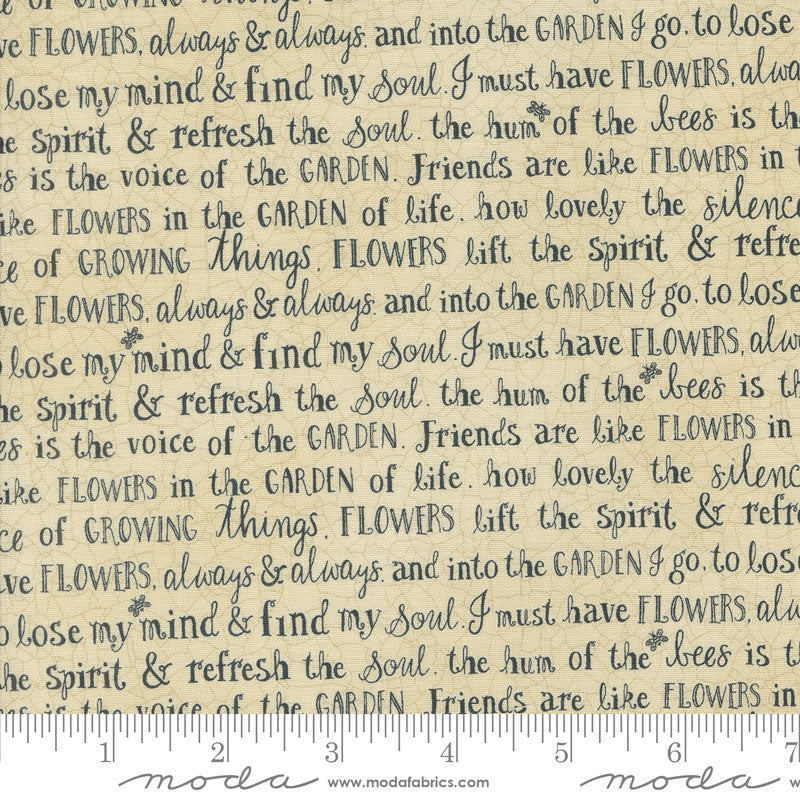 of GROWING things.
ve FLOWERS, always & always. and into the GARDEN I go, to lose
lose my mind & find my soul. I must have FLOWERS, alwa
he spirit & refresh the soul. the hum of the bees is th
es is the voice of the GARDEN. Friends are like FLOWERS in t
ike FLOWERS in the GARDEN of life. how lovely the silence
ce of GROWING things. FLOWERS lift the spirit & refre
ve FLOWERS, always & always. and into the GARDEN I go, to lose
o lose my mind & find my soul. I must have FLOWERS, alw
he spirit & refresh the soul. the hum of the bees is th
es is the voice of the GARDEN. Friends are like FLOWERS in
like FLOWERS in the GARDEN of life. how lovely the silenc
ce of GROWING things. FLOWERS lift the spirit & refr
ave FLOWERS, always & always. and into the GARDEN I go, to lose
o lose my mind & find my soul. I must have FLOWERS, alw
the spirit & refresh the soul. the hum of the bees is t
ees is the voice of the GARDEN. Friends are like FLOWERS in
1 2 3 4 5 6 7
moda www.modafabrics.com moda w